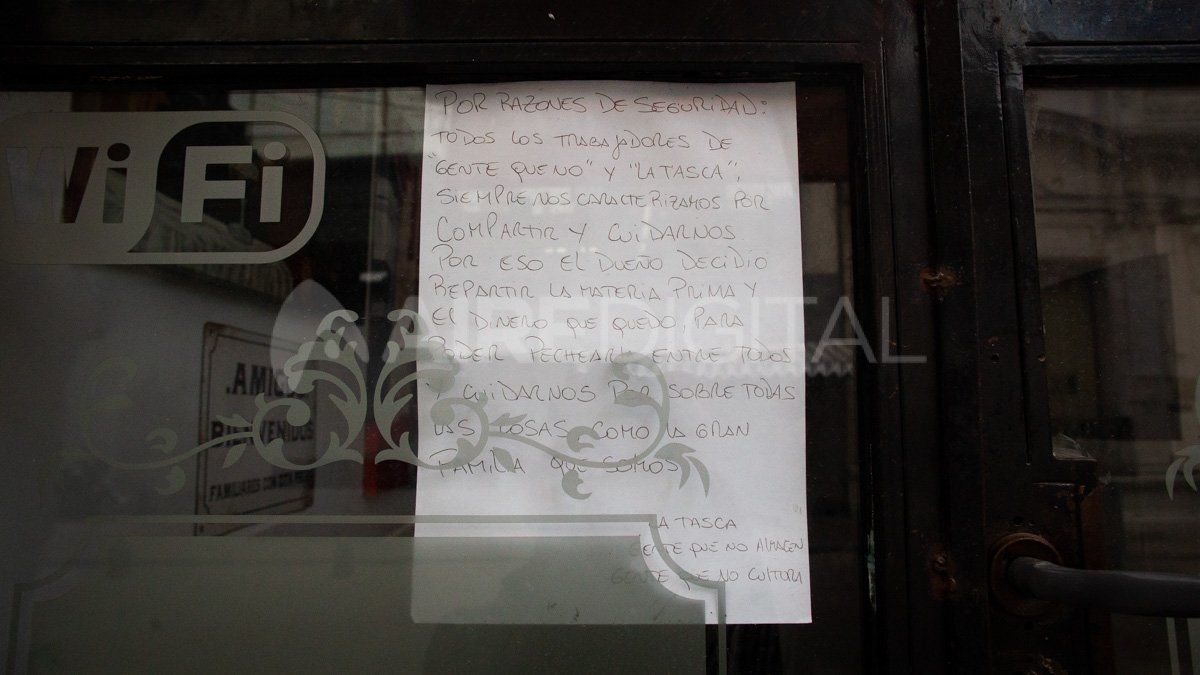 WiFi
POR RAZONES DE SEGURIDAD:
TODOS LOS TRABAJADORES DE
"GENTE QUE NO" Y "LA TASCA",
SIEMPRE NOS CARACTERIZAMOS POR
COMPARTIR Y CUIDARNOS
POR ESO EL DUEÑO DECIDIO
REPARTIR LA MATERIA PRIMA Y
EL DINERO QUE QUEDO, PARA
PODER PECHEARLA ENTRE TODOS
Y CUIDARNOS POR SOBRE TODAS
LAS COSAS COMO LA GRAN
FAMILIA QUE SOMOS
LA TASCA
GENTE QUE NO ALMACEN
GENTE QUE NO CULTURA
AIREDIGITAL
.AMIGOS
BIENVENIDOS
FAMILIARES CON CITA PREVIA